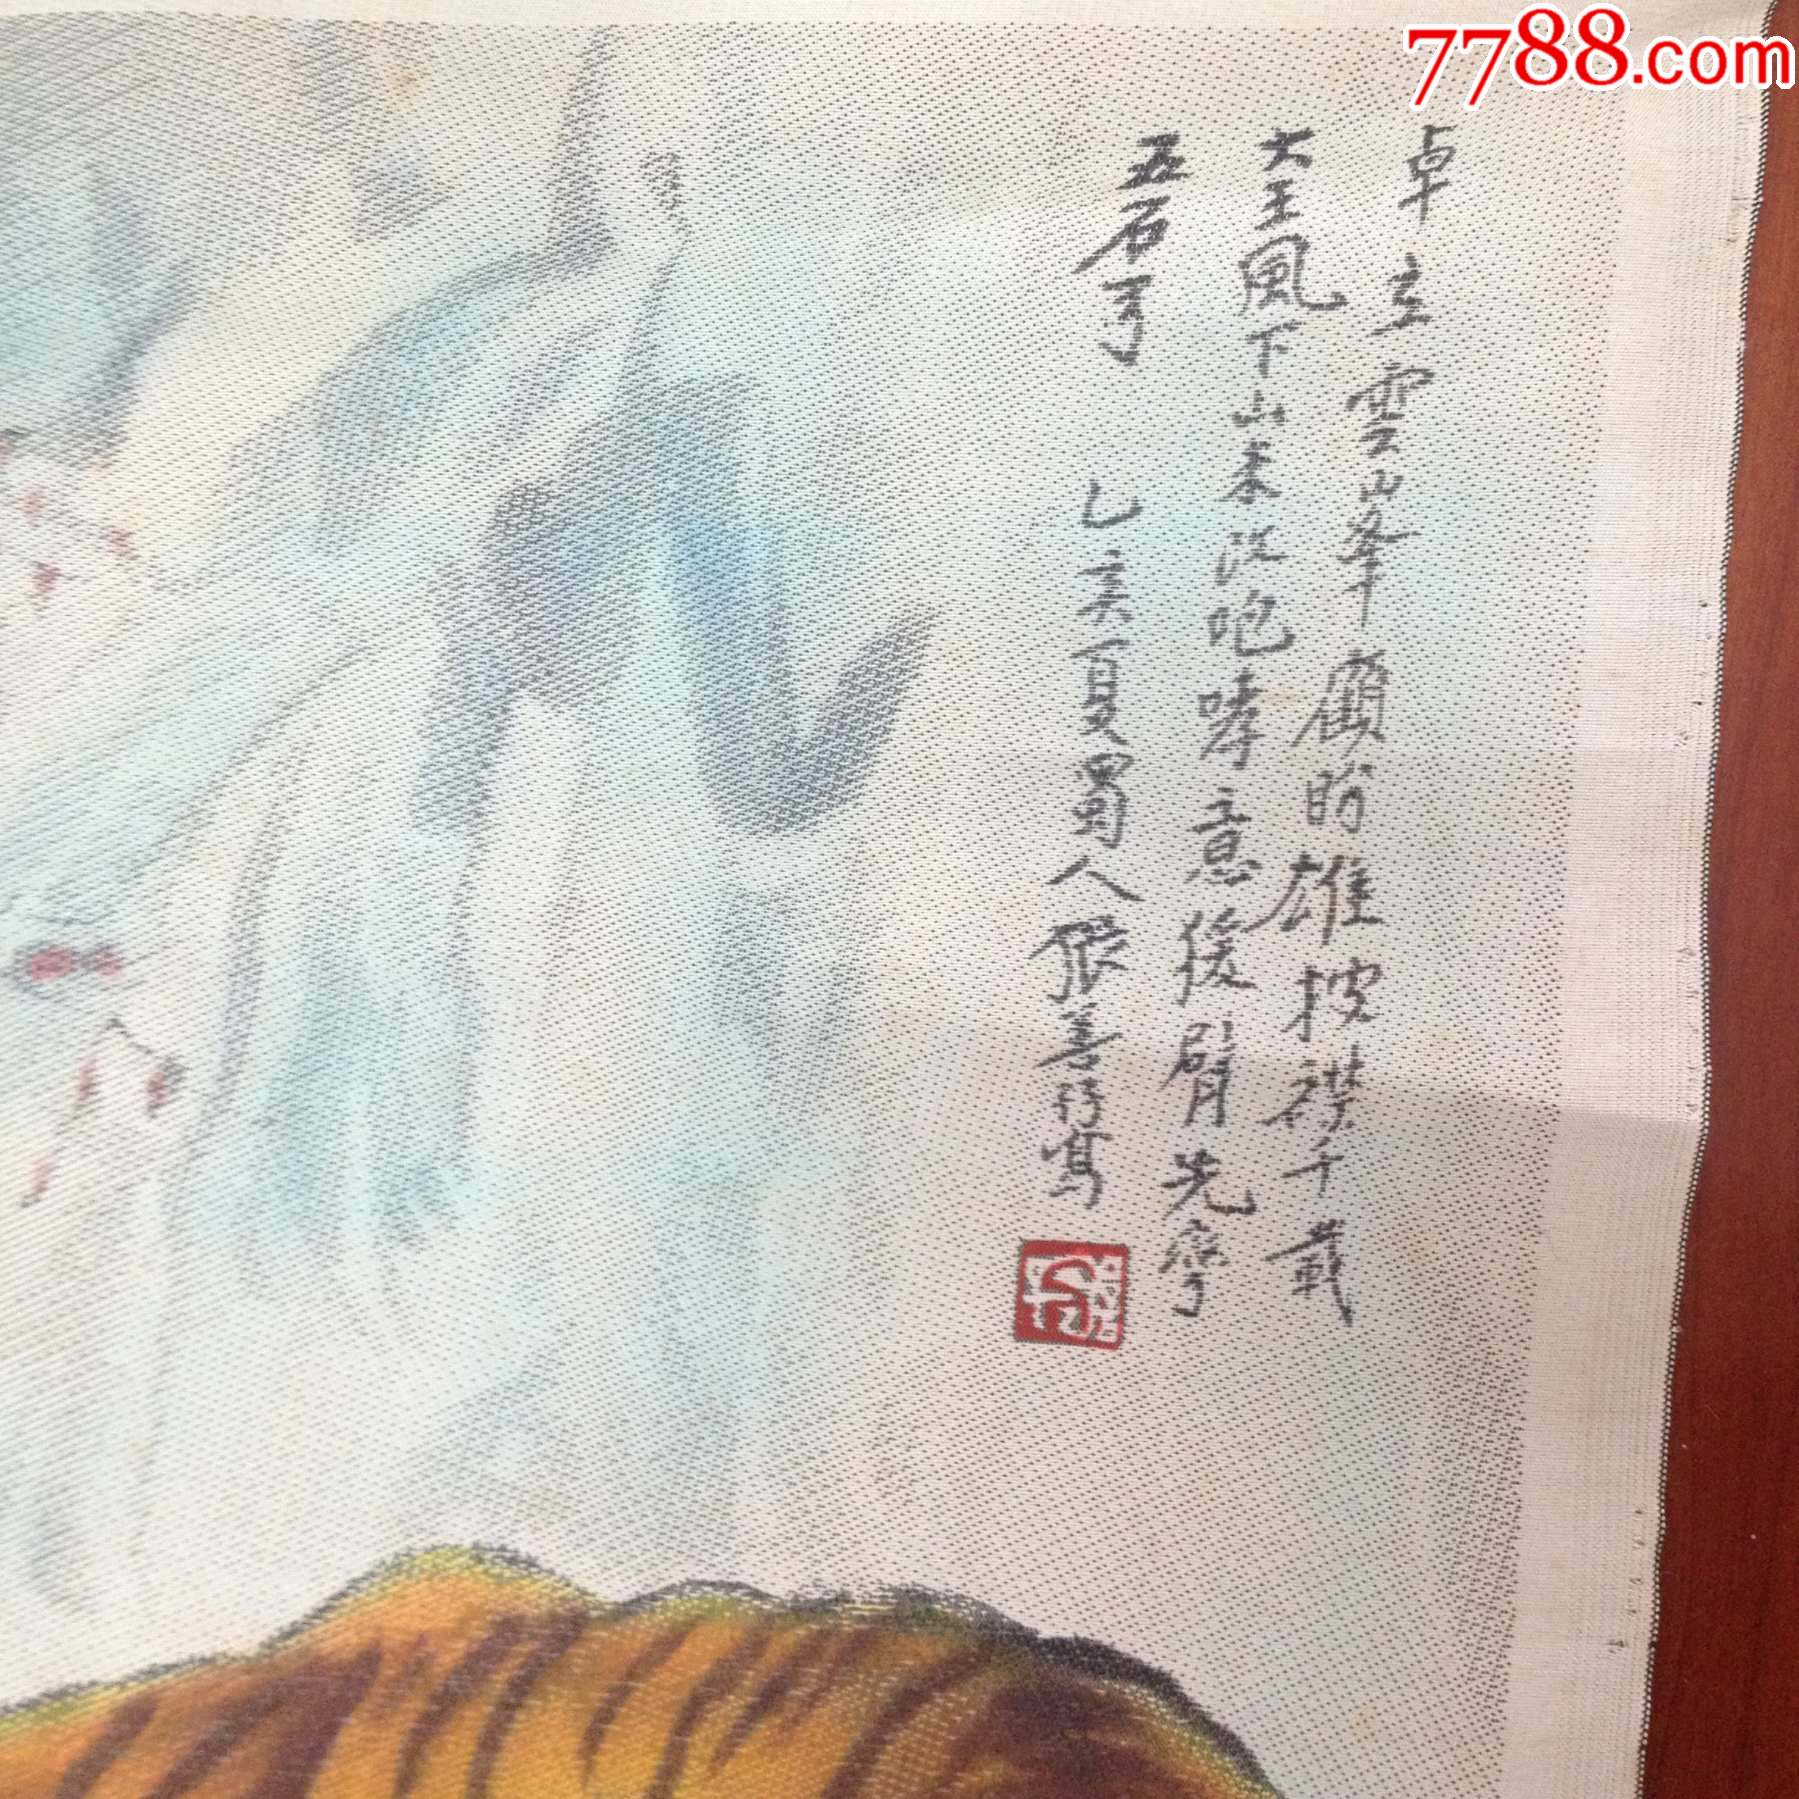 7788.com
卓立雲峰顧盼雄披襟千載
大王風下山未從咆哮意援臂先彎
五石弓 乙亥夏蜀人張善孖寫